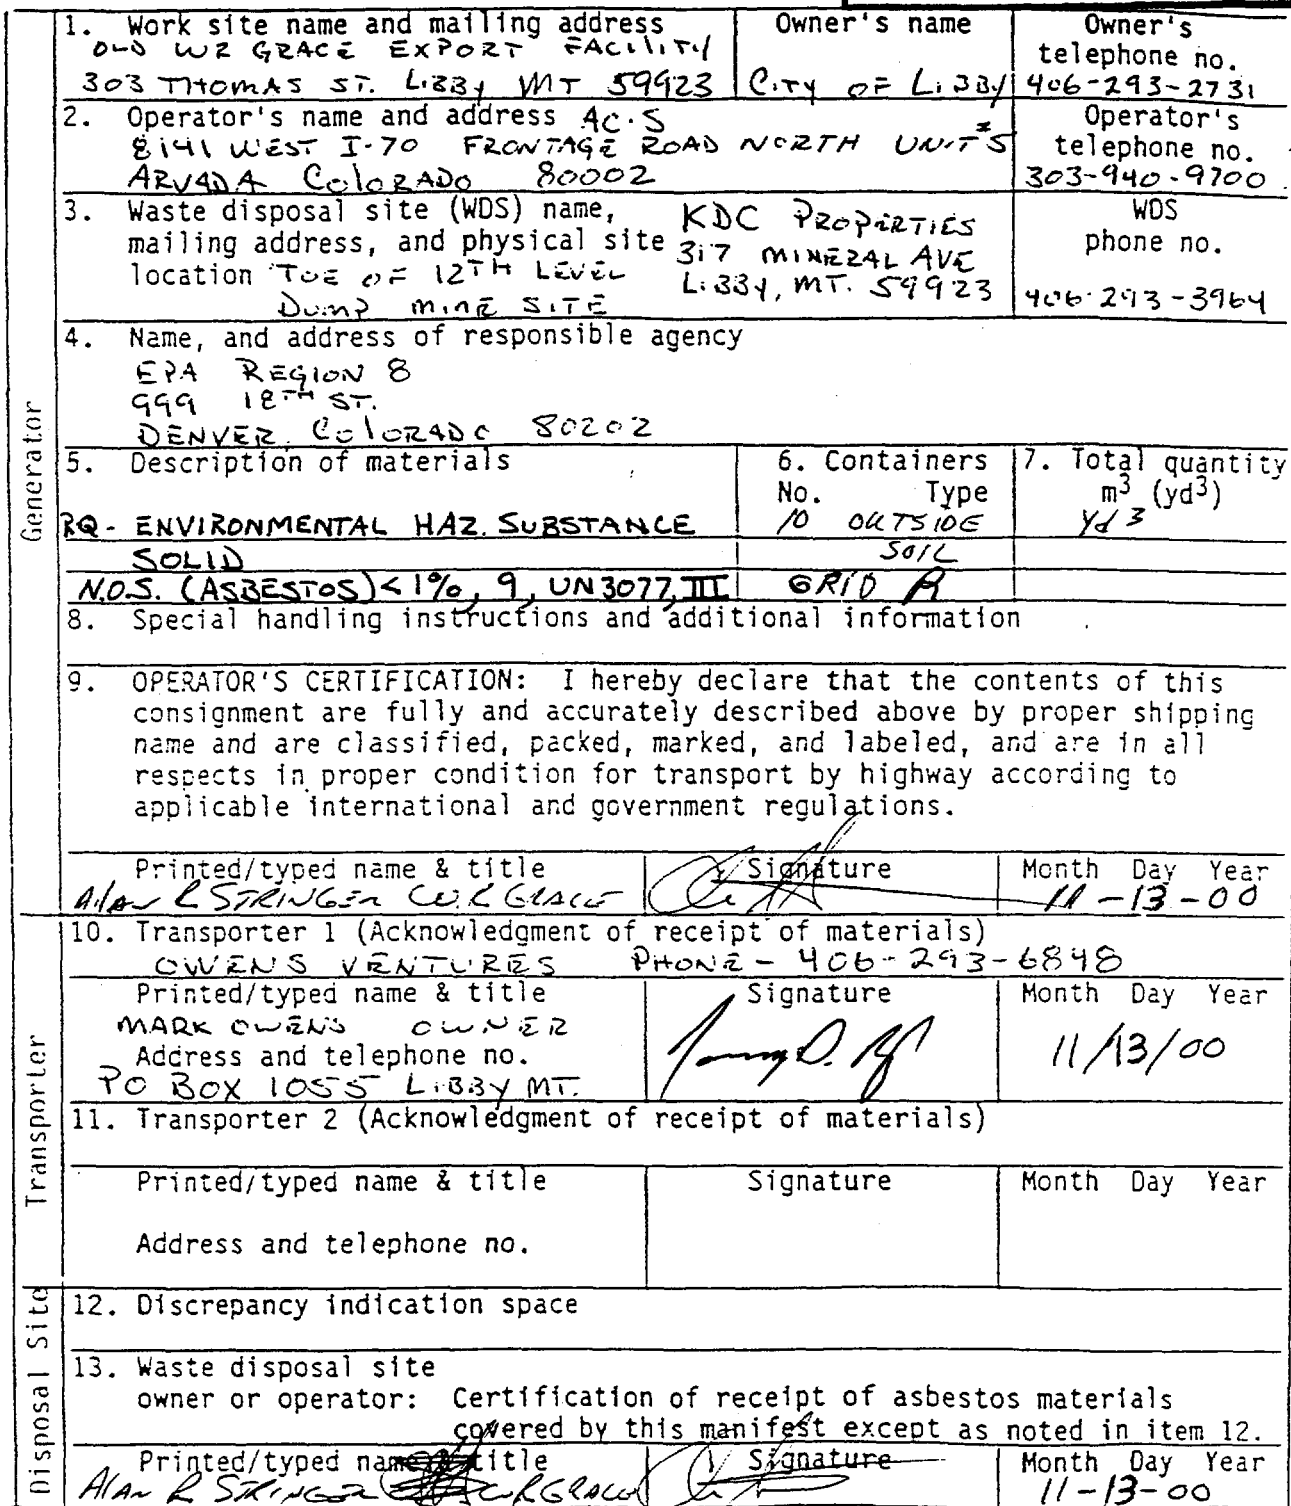 Generator
1. Work site name and mailing address
OLD WR GRACE EXPORT FACILITY
303 THOMAS ST. LIBBY MT 59923
Owner's name
CITY OF LIBBY
Owner's
telephone no.
406-293-2731
2. Operator's name and address AC·S
8141 WEST I-70 FRONTAGE ROAD NORTH UNIT #5
ARVADA COLORADO 80002
Operator's
telephone no.
303-940-9700
3. Waste disposal site (WDS) name,
mailing address, and physical site
location TOE OF 12TH LEVEL
DUMP MINE SITE
KDC PROPERTIES
317 MINERAL AVE
LIBBY, MT. 59923
WDS
phone no.
406-293-3964
4. Name, and address of responsible agency
EPA REGION 8
999 18TH ST.
DENVER COLORADO 80202
5. Description of materials
6. Containers
No. Type
7. Total quantity
m3 (yd3)
RQ - ENVIRONMENTAL HAZ. SUBSTANCE
10 OUTSIDE
Yd 3
SOLID
SOIL
N.O.S. (ASBESTOS) <1%, 9, UN3077, III
GRID A
8. Special handling instructions and additional information
9. OPERATOR'S CERTIFICATION: I hereby declare that the contents of this
consignment are fully and accurately described above by proper shipping
name and are classified, packed, marked, and labeled, and are in all
respects in proper condition for transport by highway according to
applicable international and government regulations.
Printed/typed name & title
Signature
Month Day Year
Alan R STRINGER W.R GRACE
11-13-00
Transporter
10. Transporter 1 (Acknowledgment of receipt of materials)
OWENS VENTURES PHONE - 406-293-6848
Printed/typed name & title
Signature
Month Day Year
MARK OWENS OWNER
11/13/00
Address and telephone no.
PO BOX 1055 LIBBY MT.
11. Transporter 2 (Acknowledgment of receipt of materials)
Printed/typed name & title
Signature
Month Day Year
Address and telephone no.
Disposal Site
12. Discrepancy indication space
13. Waste disposal site
owner or operator: Certification of receipt of asbestos materials
covered by this manifest except as noted in item 12.
Printed/typed name & title
Signature
Month Day Year
Alan R STRINGER W R GRACE
11-13-00